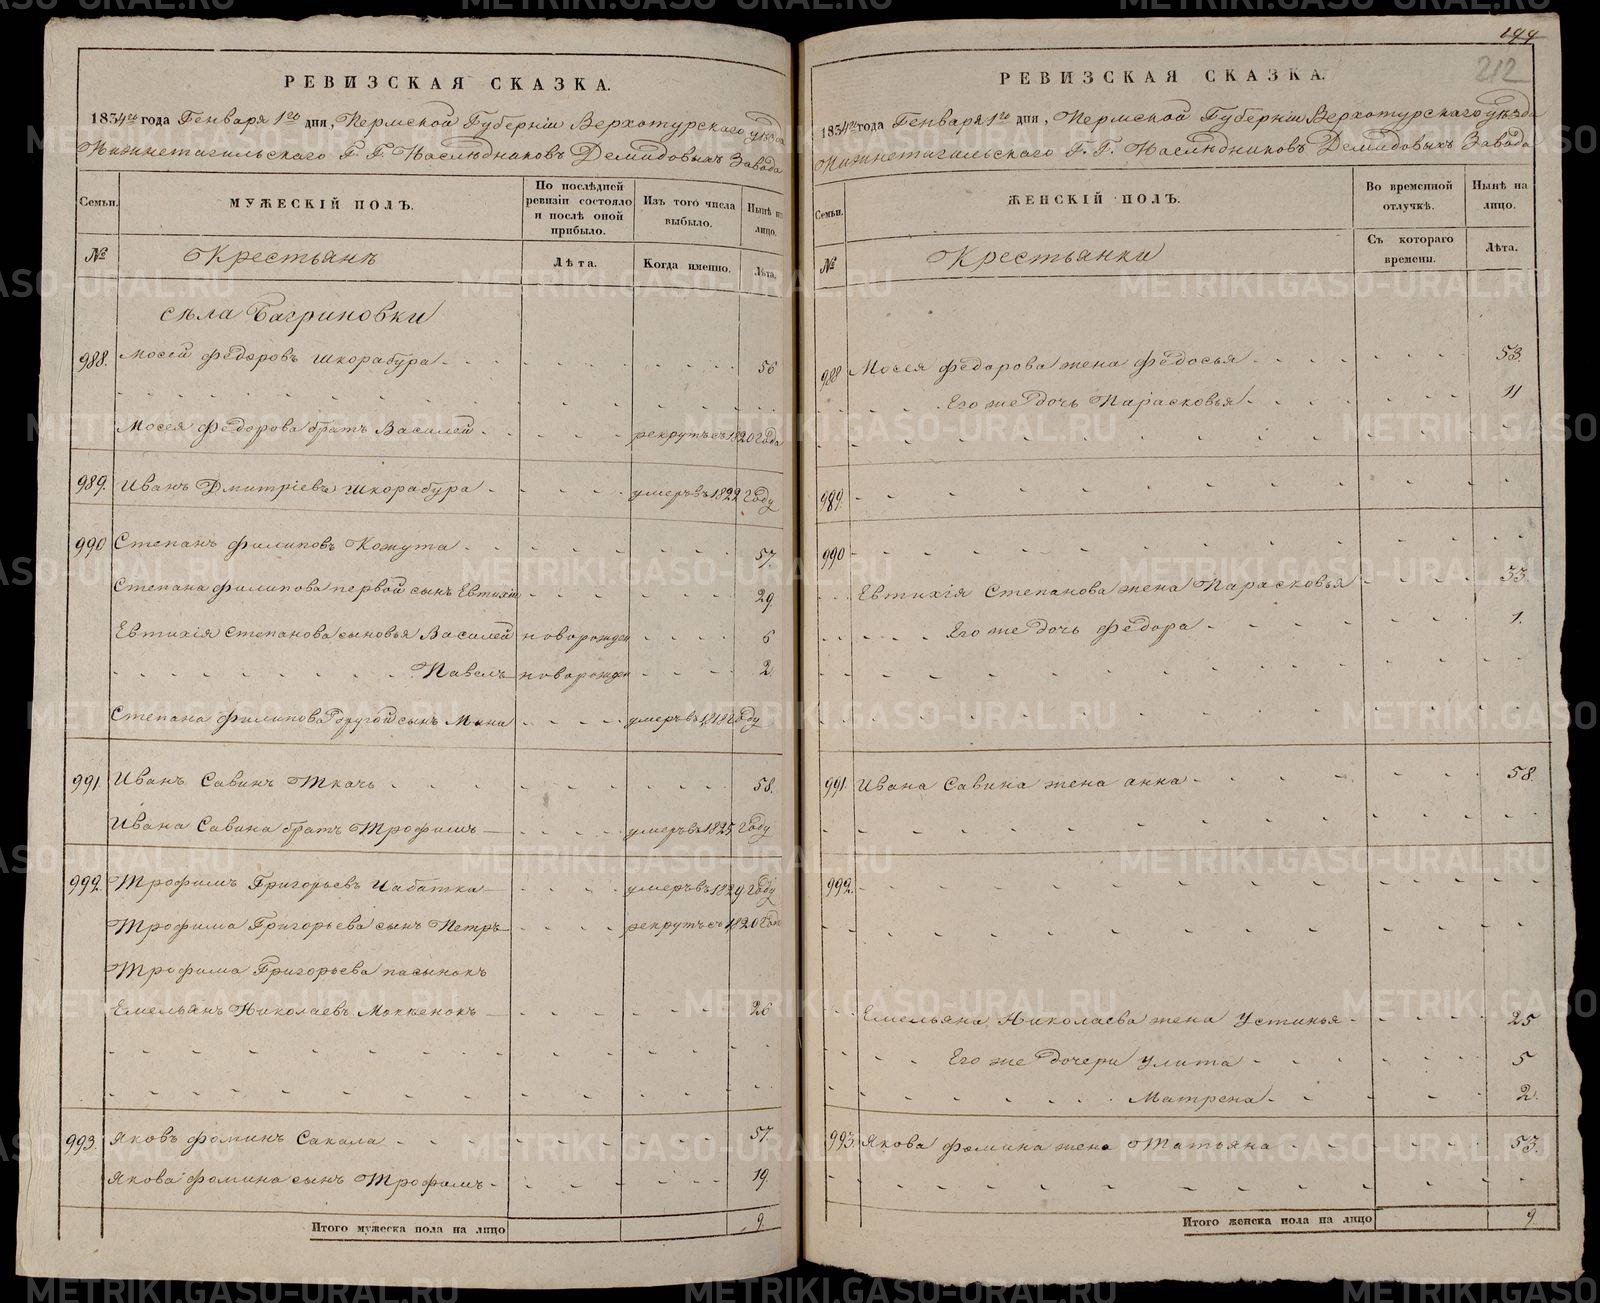 РЕВИЗСКАЯ СКАЗКА.
1834го года Генваря 1го дня, Пермской Губерніи Верхотурскаго уѣзда
Нижнетагильскаго Г. Г. Наслѣдниковъ Демидовыхъ Завода
Семьи. МУЖЕСКІЙ ПОЛЪ. По послѣдней ревизіи состояло и послѣ оной прибыло. Изъ того числа выбыло. Нынѣ на лицо.
№ Крестьянъ Лѣта. Когда именно. Лѣта.
села Багриновки
988. Мосей Федоровъ Шкорабура 56
Мосея Федорова братъ Василей рекрутъ съ 1820 Года
989. Иванъ Дмитріевъ Шкорабура умеръ въ 1822 Году
990 Степанъ Филиповъ Кожута 57.
Степана Филипова первой сынъ Евтихій 29.
Евтихія Степанова сыновья Василей новорожден 6
Павелъ новорожден 2.
Степана Филипова другой сынъ Мина умеръ въ Году
991. Иванъ Савинъ Ткачь 58.
Ивана Савина братъ Трофимъ умеръ въ 1825 Году
992. Трофимъ Григорьевъ Цабатка умеръ въ 1829 Году
Трофима Григорьева сынъ Петръ рекрутъ съ 1820 Года
Трофима Григорьева пасынокъ
Емельянъ Николаевъ 26
993. Яковъ Фоминъ Сакала 57.
Якова Фомина сынъ Трофимъ 19.
Итого мужеска пола на лицо 9
199
212
РЕВИЗСКАЯ СКАЗКА.
1834го года Генваря 1го дня, Пермской Губерніи Верхотурскаго уѣзда
Нижнетагильскаго Г. Г. Наслѣдниковъ Демидовыхъ Завода
Семьи. ЖЕНСКІЙ ПОЛЪ. Во временной отлучкѣ. Нынѣ на лицо.
№ Крестьянки Съ котораго времени. Лѣта.
988 Мосея Федорова жена Федосья 53.
Его же дочь Парасковья 11
989.
990
Евтихія Степанова жена Парасковья 33.
Его же дочь Федора 1.
991. Ивана Савина жена анна 58.
992.
Емельяна Николаева жена Устинья 25
Его же дочери Улита 5
Матрена 2.
993. Якова Фомина жена Татьяна 53.
Итого женска пола на лицо 9
METRIKI.GASO-URAL.RU